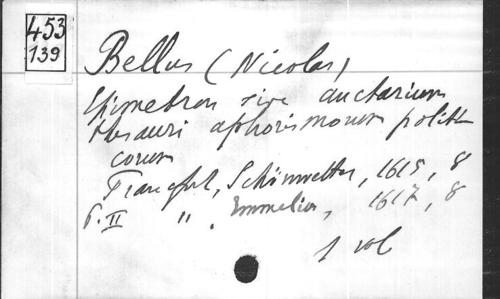 453
139
Bellus (Nicolas)
Epimetron sive auctarium
thesauri aphorismorum politi
corum
Francfort, Schönwetter, 1615, 8
P. II " Emmelius, 1617, 8
1 vol